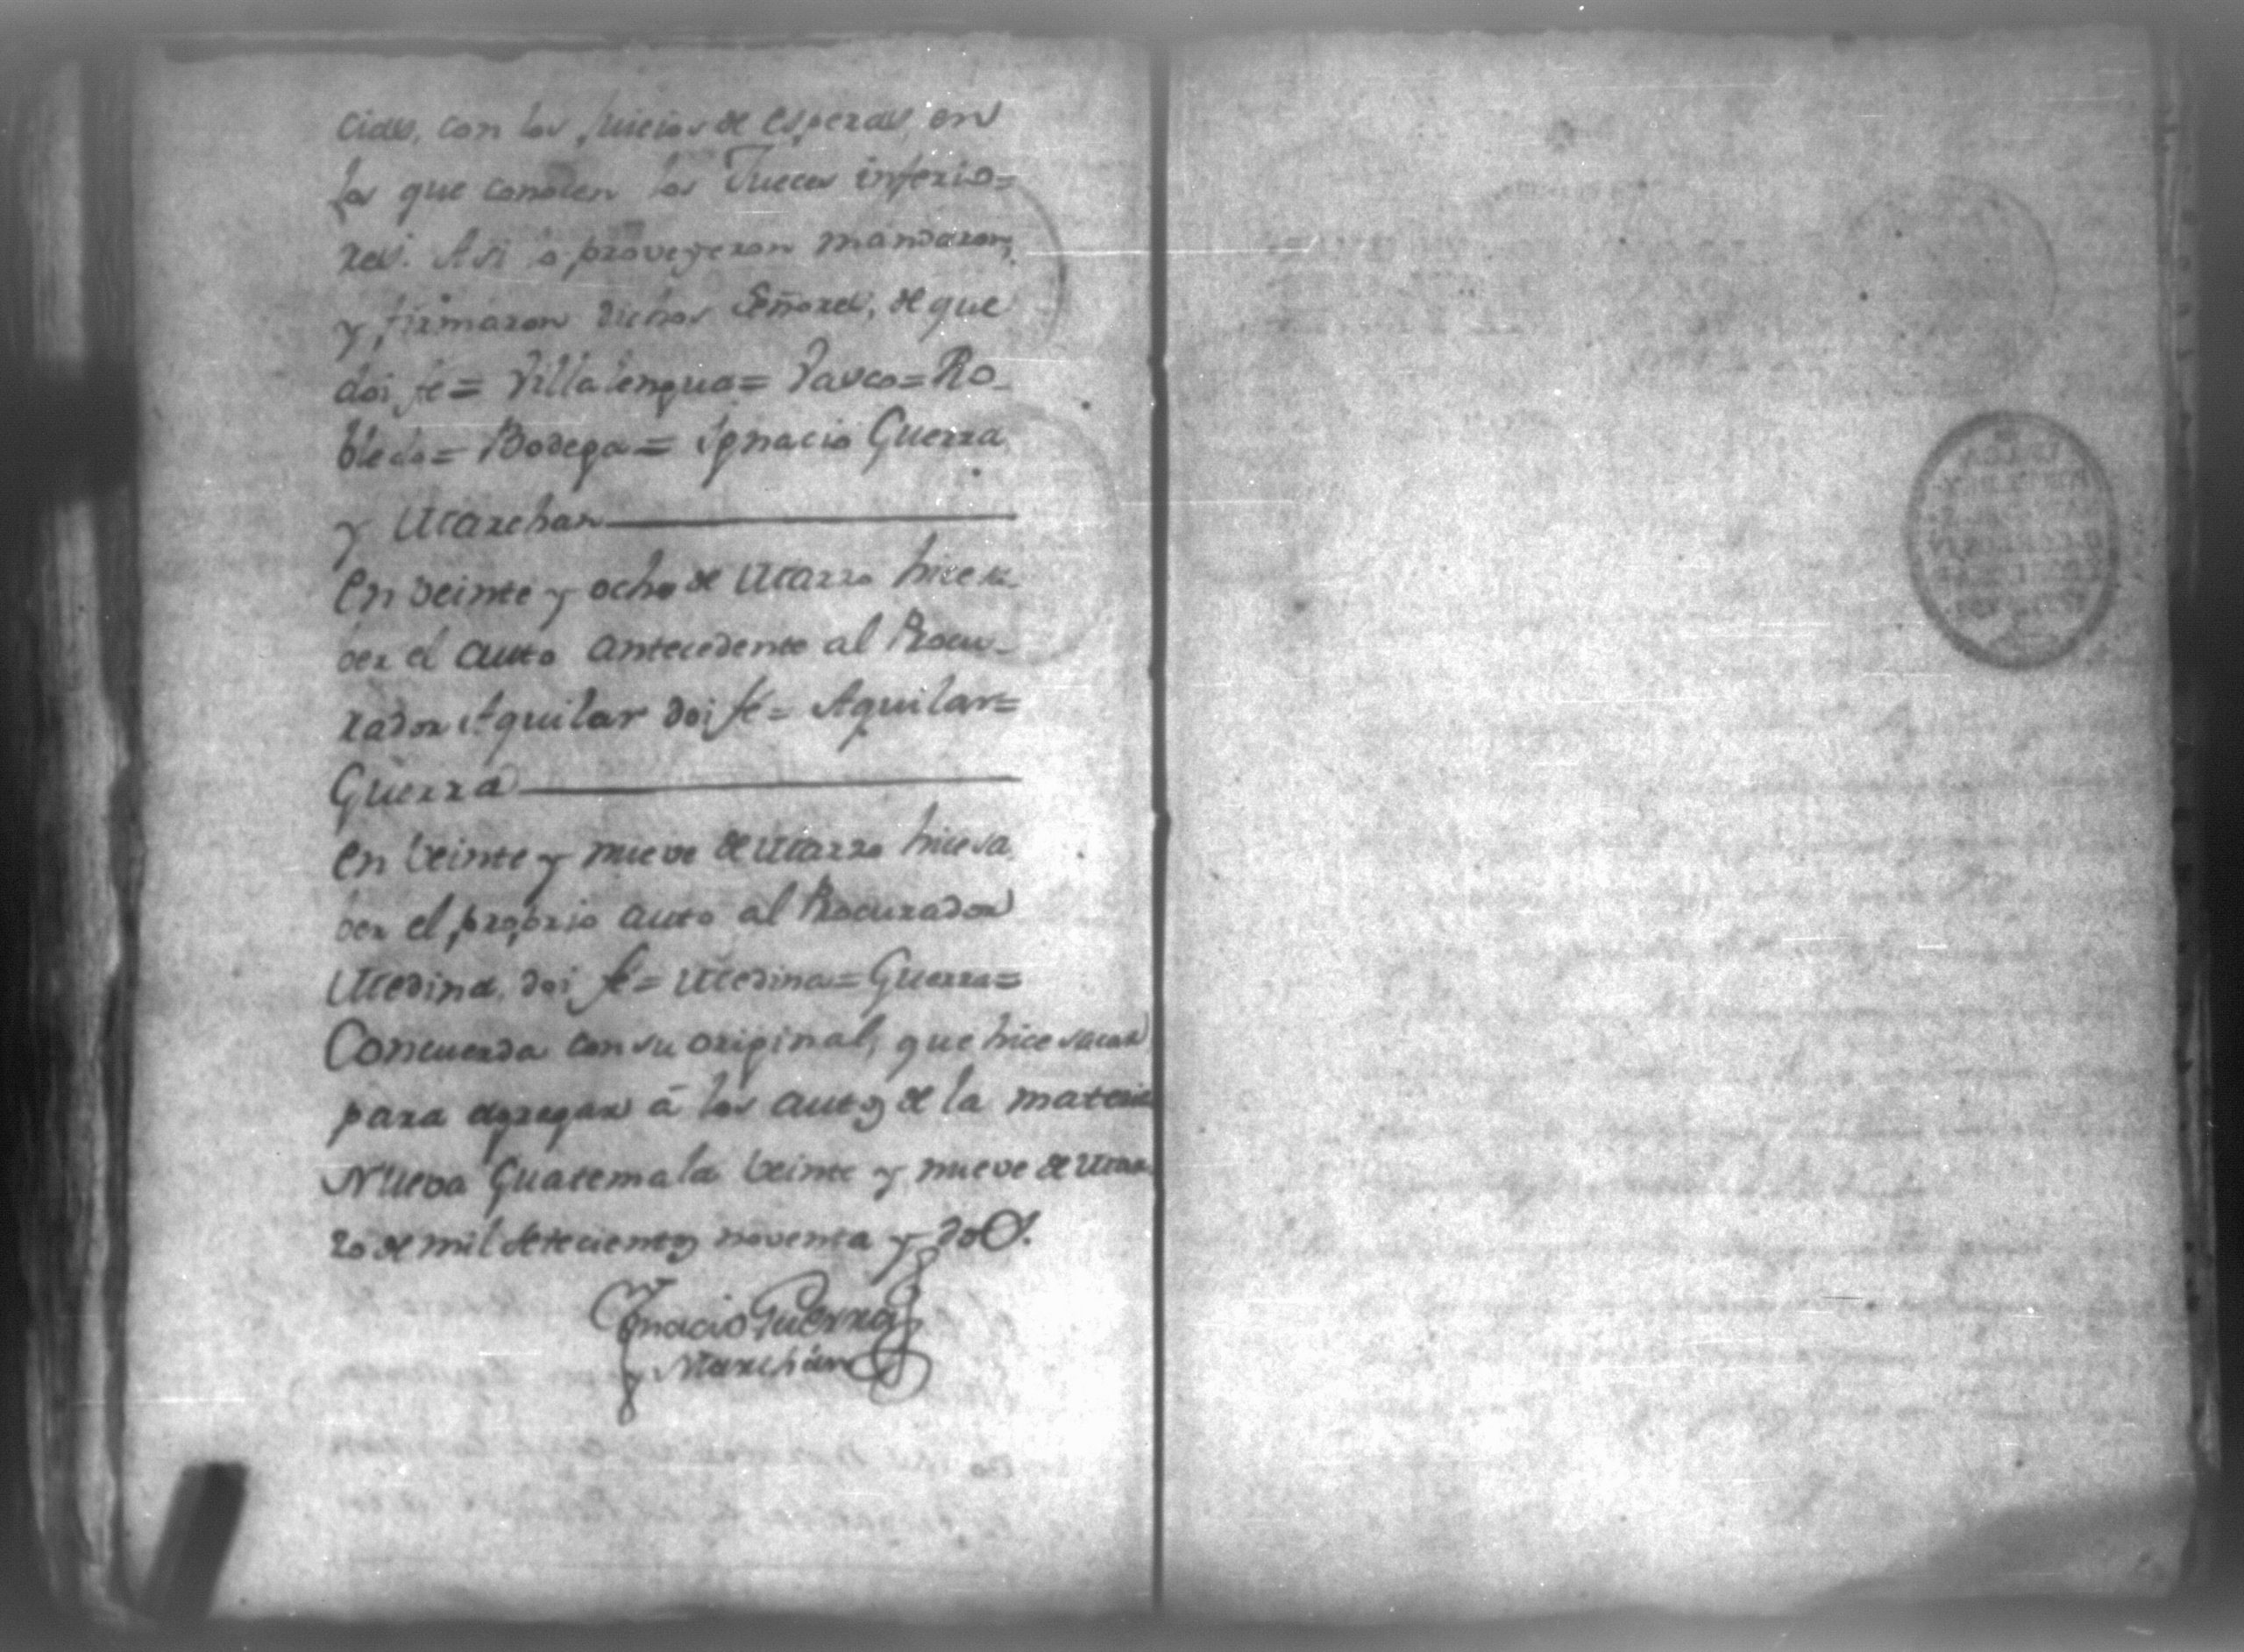 cias, con los Juicios de esperas, en
los que conocen los Jueces inferio=
res. Asi lo proveyeron mandaron,
y firmaron dichos Señores, de que
doi fe = Villalengua = Vasco = Ro-
bledo = Bodega = Ignacio Guerra
y Marchan
En veinte y ocho de Marzo hice sa-
ber el auto antecedente al Procu-
rador Aguilar doi fé = Aguilar =
Guerra
En veinte y nueve de Marzo hice sa
ber el proprio auto al Procurador
Medina, doi fé = Medina = Guerra =
Concuerda con su original, que hice sacar
para agregar á los autos de la materia
Nueva Guatemala veinte y nueve de Mar
zo de mil setecientos noventa y dos.
Ignacio Guerra
y Marchán